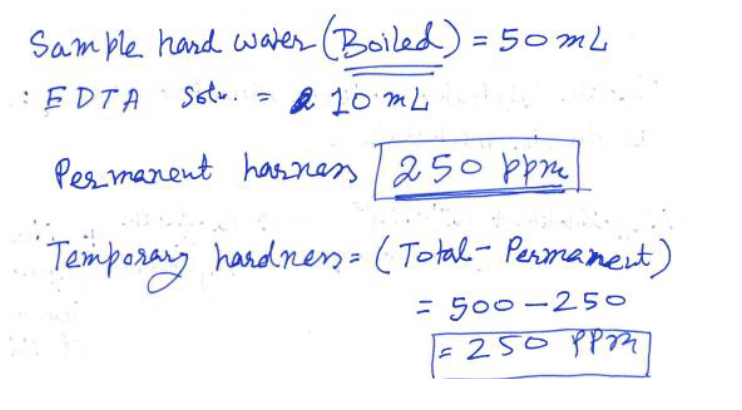 Sample hard water (Boiled) = 50 mL
: EDTA Soln. = 10 mL
Permanent harness 250 ppm
Temporary hardness = (Total - Permanent)
= 500 - 250
= 250 ppm